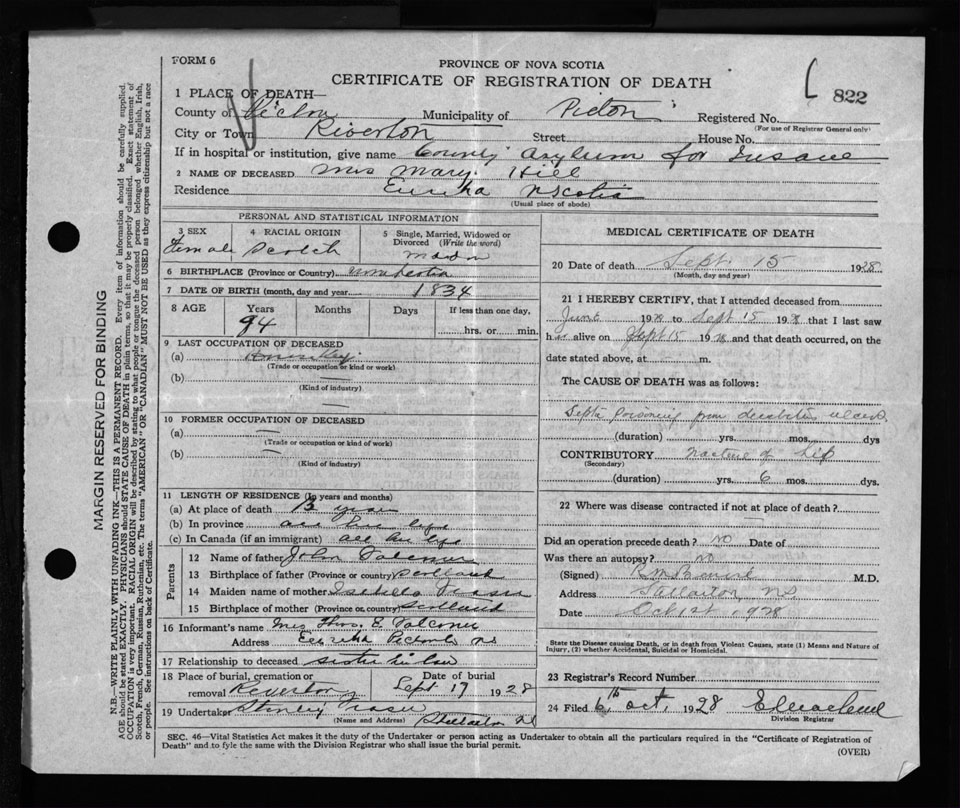 FORM 6
PROVINCE OF NOVA SCOTIA
CERTIFICATE OF REGISTRATION OF DEATH
822
1 PLACE OF DEATH—
County of Pictou Municipality of Pictou Registered No.
(For use of Registrar General only)
City or Town Riverton Street House No.
If in hospital or institution, give name County Asylum for Insane
2 NAME OF DECEASED Mrs Mary Hill
Residence Eureka N Scotia
(Usual place of abode)
PERSONAL AND STATISTICAL INFORMATION
3 SEX Female
4 RACIAL ORIGIN Scotch
5 Single, Married, Widowed or Divorced (Write the word)
6 BIRTHPLACE (Province or Country)
7 DATE OF BIRTH (month, day and year) 1834
8 AGE Years 94 Months Days If less than one day, hrs. or min.
9 LAST OCCUPATION OF DECEASED
(a)
(Trade or occupation or kind of work)
(b) —
(Kind of industry)
10 FORMER OCCUPATION OF DECEASED
(a) —
(Trade or occupation or kind of work)
(b) —
(Kind of industry)
11 LENGTH OF RESIDENCE (In years and months)
(a) At place of death years
(b) In province all her life
(c) In Canada (if an immigrant) all her life
Parents
12 Name of father John Falconer
13 Birthplace of father (Province or country) Scotland
14 Maiden name of mother Isabella Fraser
15 Birthplace of mother (Province or country) Scotland
16 Informant's name Mrs Thos. E. Falconer
Address Eureka Pictou Co NS
17 Relationship to deceased sister in law
18 Place of burial, cremation or removal Riverton Date of burial Sept 17 1928
19 Undertaker Stanley Fraser
(Name and Address) Stellarton NS
MEDICAL CERTIFICATE OF DEATH
20 Date of death Sept. 15 1928
(Month, day and year)
21 I HEREBY CERTIFY, that I attended deceased from
June 1928 to Sept 15 1928 that I last saw
her alive on Sept 15 1928 and that death occurred, on the
date stated above, at m.
The CAUSE OF DEATH was as follows:
Septic poisoning from decubitus ulcers
(duration) yrs. mos. dys
CONTRIBUTORY Fracture of hip
(Secondary)
(duration) yrs. 6 mos. dys.
22 Where was disease contracted if not at place of death?
Did an operation precede death? no Date of
Was there an autopsy? no
(Signed) M.D.
Address Stellarton, NS
Date Oct 1st 1928
State the Disease causing Death, or in death from Violent Causes, state (1) Means and Nature of
Injury, (2) whether Accidental, Suicidal or Homicidal.
23 Registrar's Record Number
24 Filed 6th Oct. 1928
Division Registrar
SEC. 46—Vital Statistics Act makes it the duty of the Undertaker or person acting as Undertaker to obtain all the particulars required in the "Certificate of Registration of
Death" and to fyle the same with the Division Registrar who shall issue the burial permit.
(OVER)
MARGIN RESERVED FOR BINDING
N.B.—WRITE PLAINLY WITH UNFADING INK—THIS IS A PERMANENT RECORD. Every item of information should be carefully supplied.
AGE should be stated EXACTLY. PHYSICIANS should STATE CAUSE OF DEATH in plain terms, so that it may be properly classified. Exact statement of
OCCUPATION is very important. RACIAL ORIGIN will be described by stating to what people or tongue the deceased person belonged whether English, Irish,
Scotch, French, German, Russian, Ruthenian, etc. The terms "AMERICAN" OR "CANADIAN" MUST NOT BE USED as they express citizenship but not a race
or people. See instructions on back of Certificate.